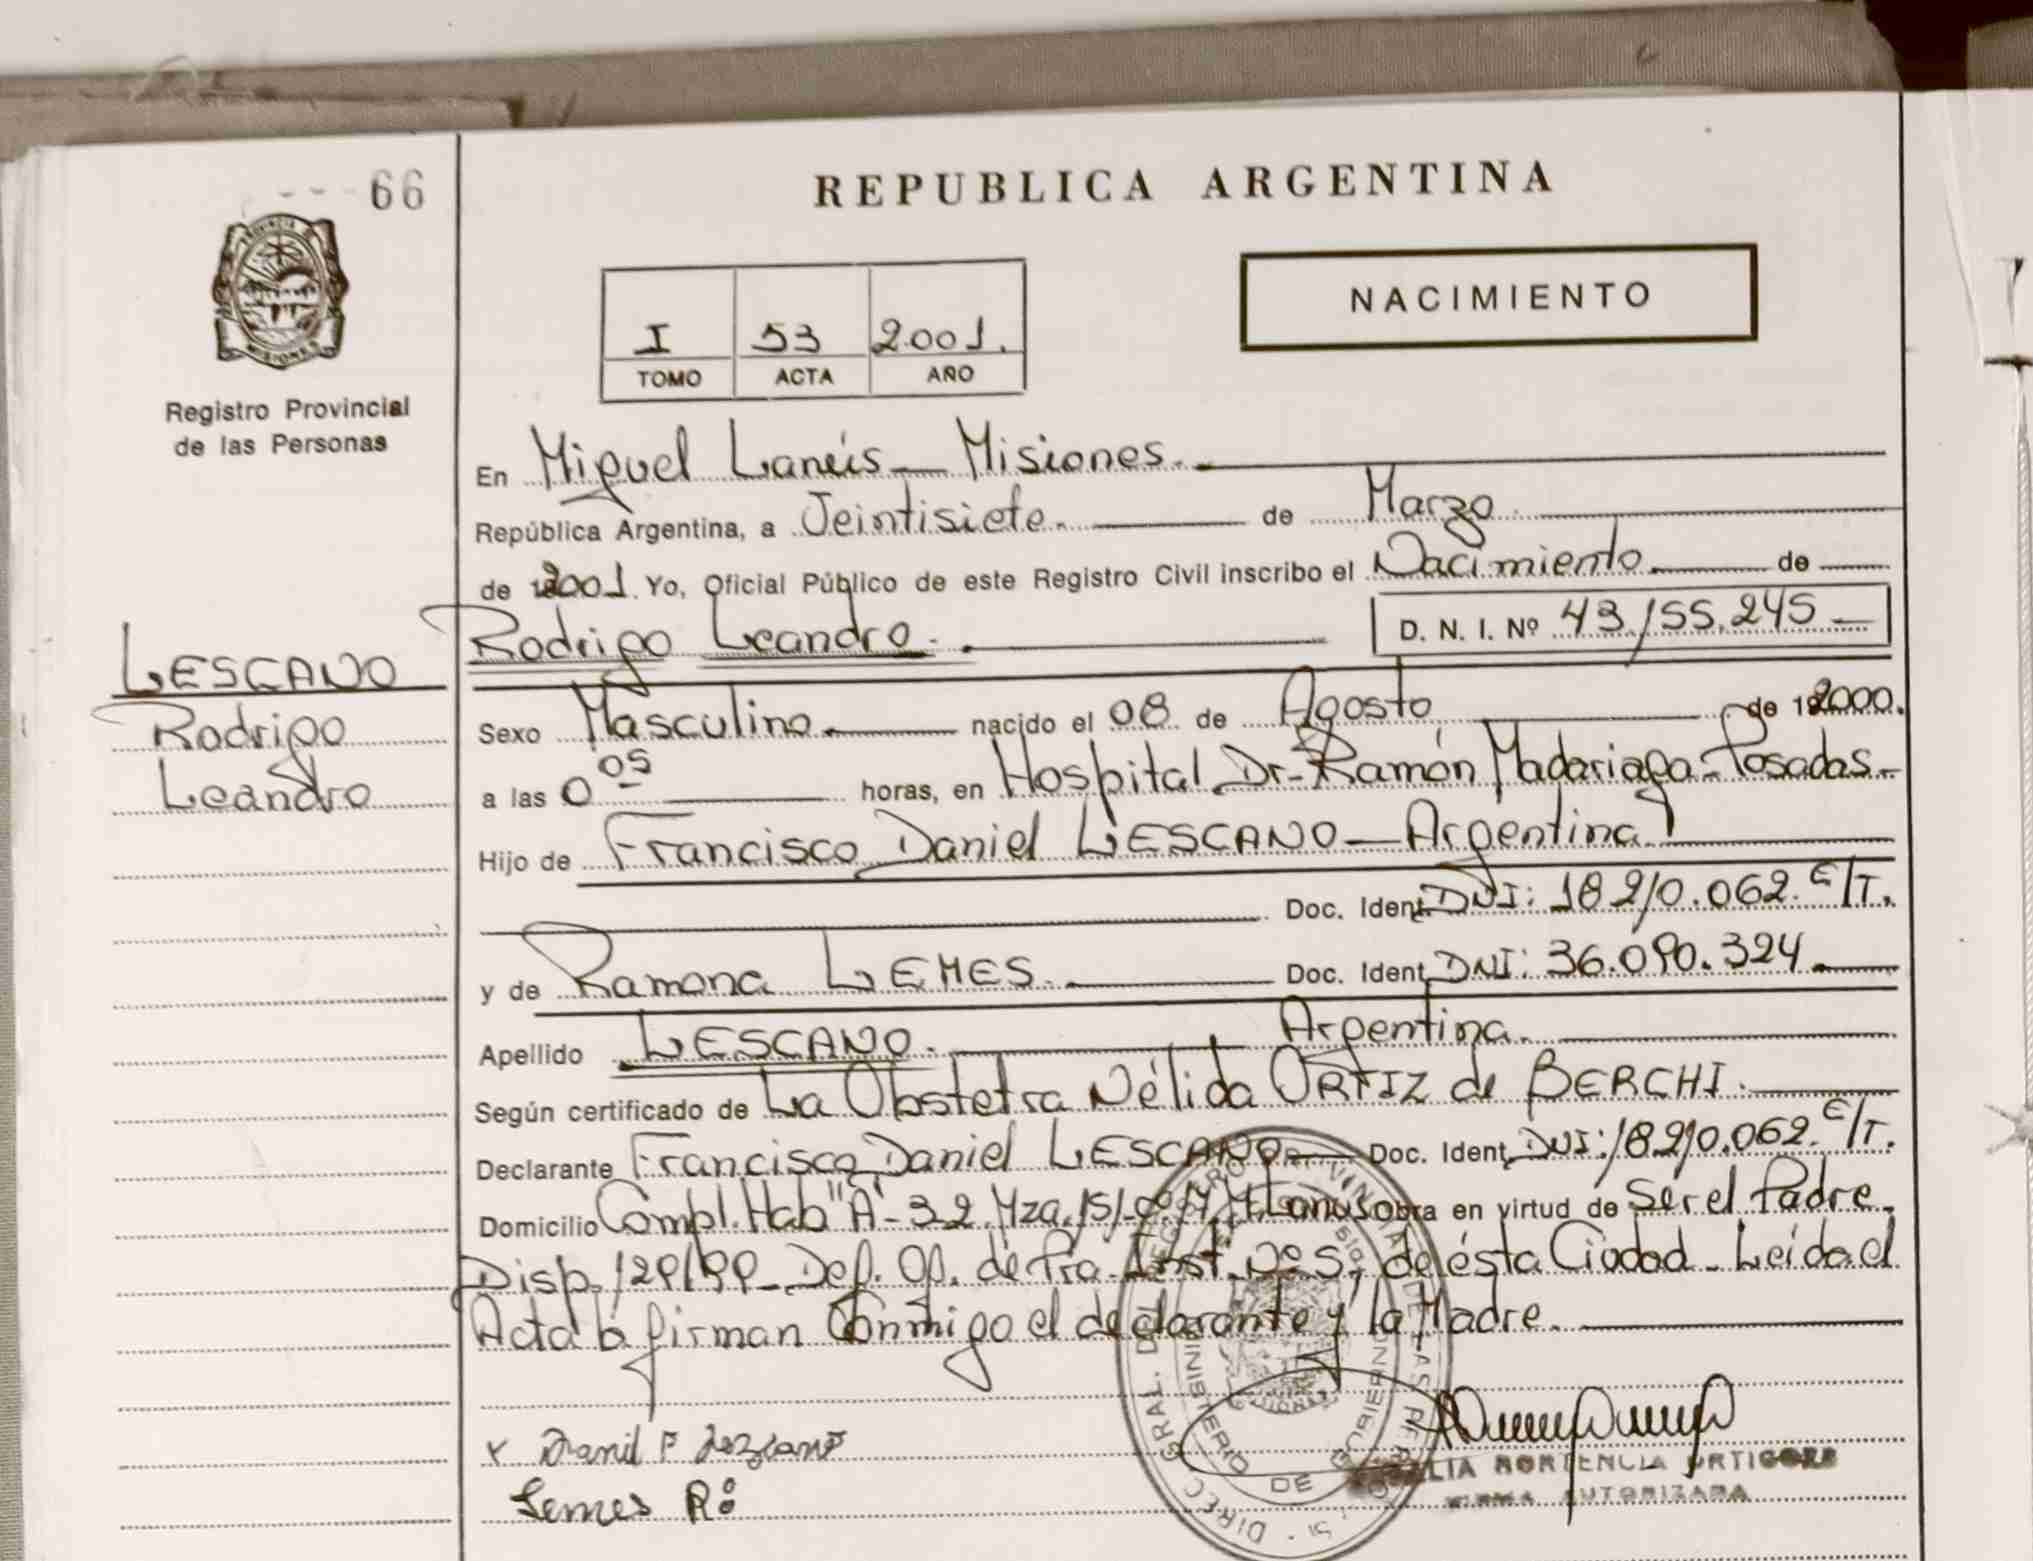 66
REPUBLICA ARGENTINA
NACIMIENTO
I 53 2001.
TOMO ACTA AÑO
PROVINCIA DE
MISIONES
Registro Provincial
de las Personas
En Miguel Lanús - Misiones.
República Argentina, a Veintisiete. de Marzo.
de 2001. Yo, Oficial Público de este Registro Civil inscribo el Nacimiento de
Rodrigo Leandro. D. N. I. Nº 43.155.245
LESCANO
Rodrigo
Leandro
Sexo Masculino nacido el 08 de Agosto de 2000.
a las 0 05 horas, en Hospital Dr. Ramón Madariaga - Posadas -
Hijo de Francisco Daniel LESCANO - Argentina.
Doc. Ident. DNI: 18210.062. E/T.
y de Ramona LEMES. Doc. Ident. DNI: 36.090.324
Apellido LESCANO. Argentina.
Según certificado de La Obstetra Nélida ORTIZ de BERCHI.
Declarante Francisco Daniel LESCANO Doc. Ident. DNI: 18210.062. E/T.
Domicilio Compl. Hab "A" - 32 Mza. M. Lanús obra en virtud de Ser el Padre.
Disp. 129/99 - Def. Of. de 1ra. Inst. Nº 5, de ésta Ciudad - Leída el
Acta la firman Conmigo el declarante y la Madre.
x Danil F Lezcano
Lemes R
HORTENCIA ORTIGOZA
FIRMA AUTORIZADA